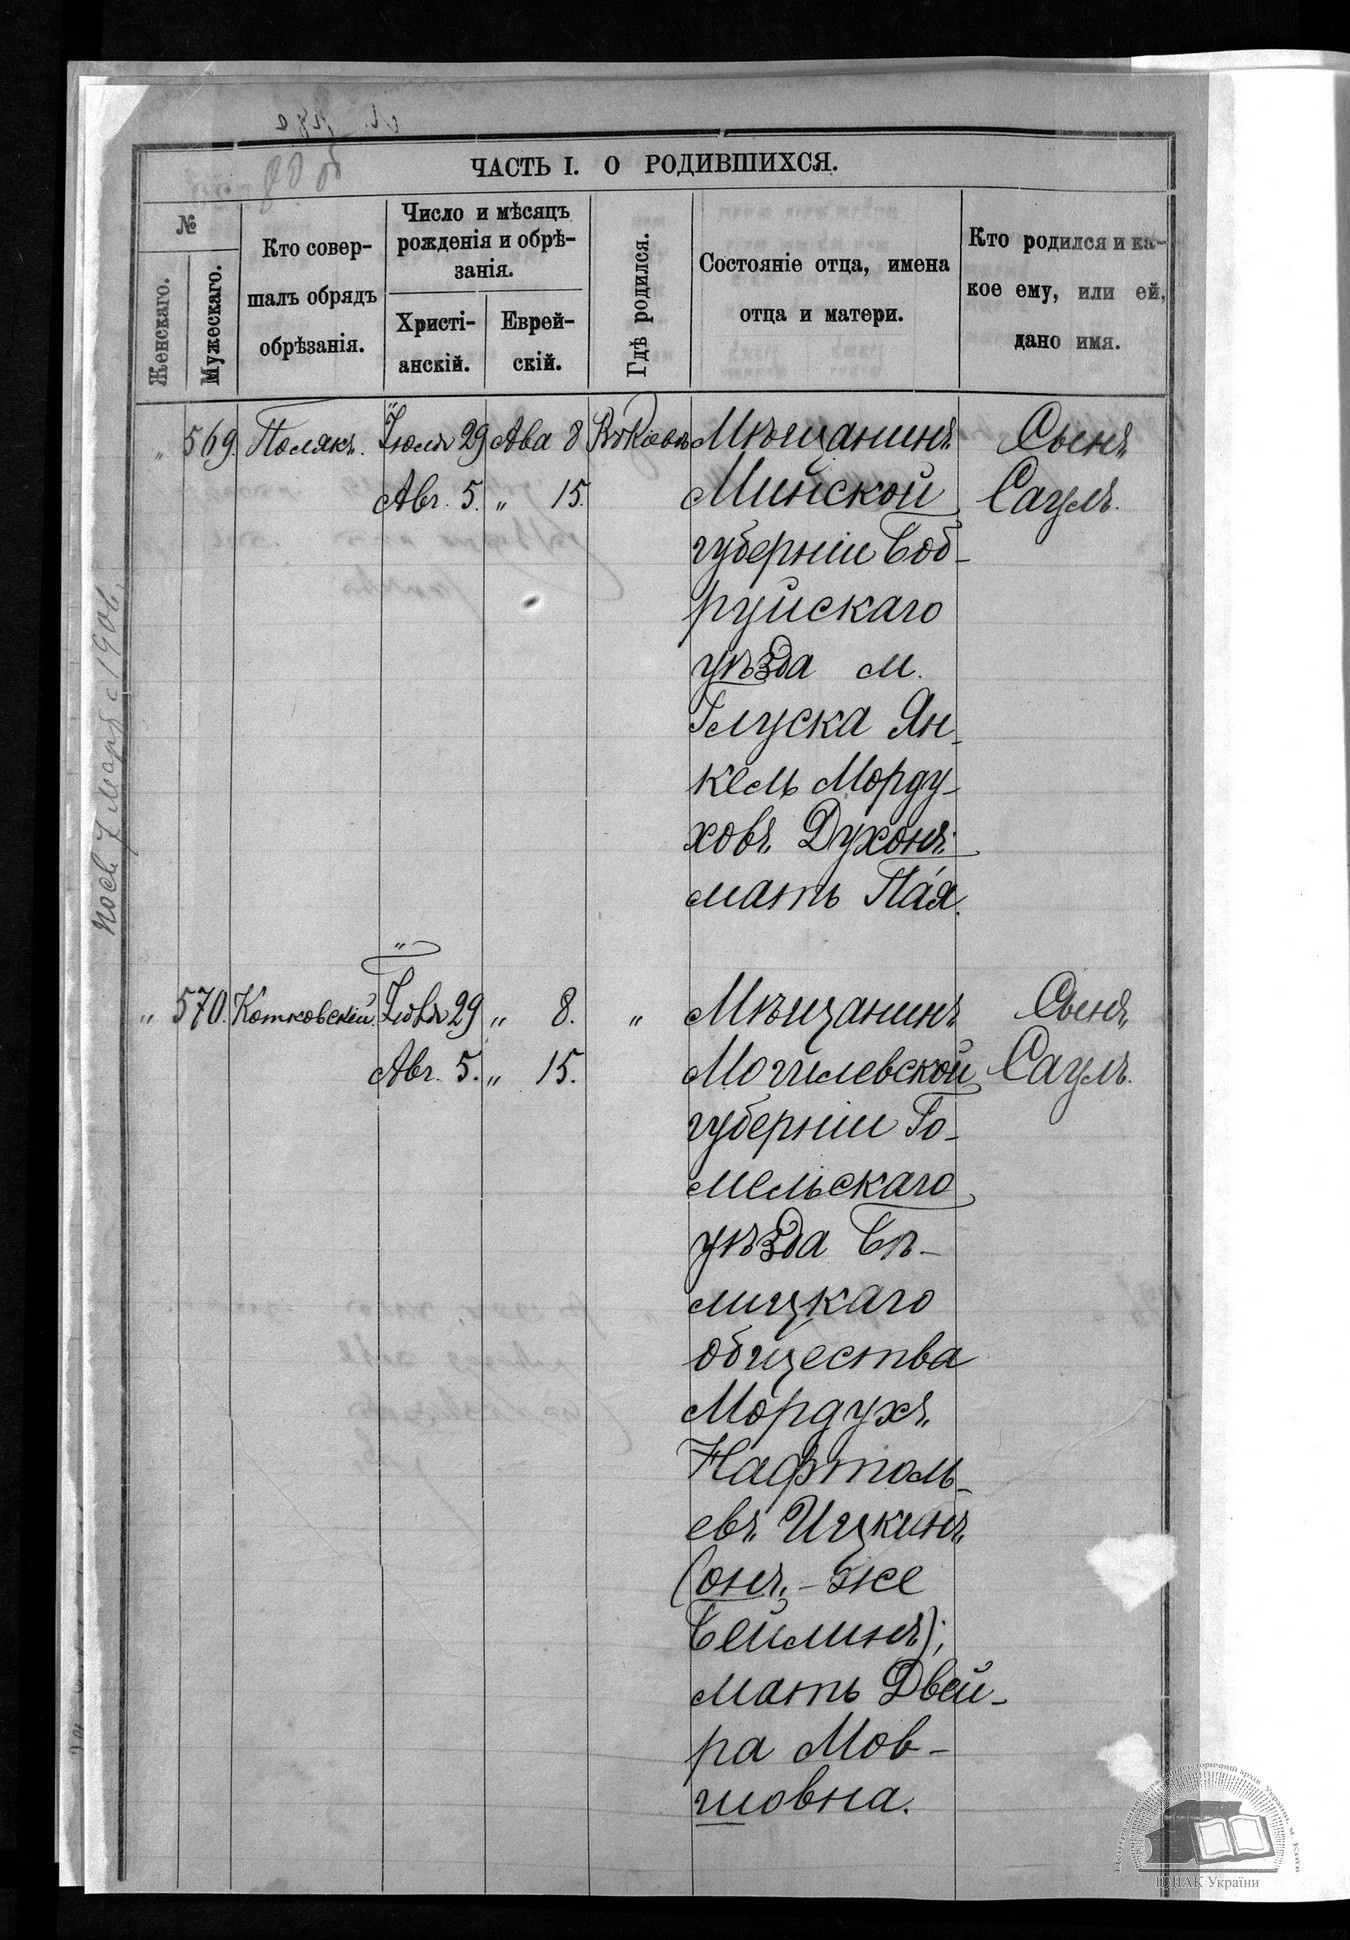 ЧАСТЬ I. О РОДИВШИХСЯ.
№
Женскаго.
Мужескаго.
Кто совер-
шалъ обрядъ
обрѣзанія.
Число и мѣсяцъ
рожденія и обрѣ-
занія.
Христі-
анскій.
Еврей-
скій.
Гдѣ родился.
Состояніе отца, имена
отца и матери.
Кто родился и ка-
кое ему, или ей,
дано имя.
„ 569. Полякъ. Іюля 29 Ава 8 Въ Кіевѣ Мѣщанинъ Сынъ
Авг. 5. „ 15. Минской Саулъ.
губерніи Боб-
руйскаго
уѣзда м.
Глуска Ян-
кель Морду-
ховъ Духонъ;
мать Пая.
„ 570. Котковскій. Іюля 29 „ 8. „ Мѣщанинъ Сынъ
Авг. 5. „ 15. Могилевской Саулъ.
губерніи Го-
мельскаго
уѣзда Бѣ-
лицкаго
общества
Мордухъ
Нафтоль-
евъ Ицкинъ
(онъ-же
Бейлинъ);
мать Двей-
ра Мов-
шовна.
ЦДІАК України